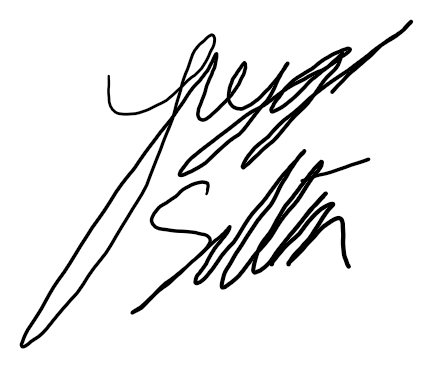 Gregg
Sutton